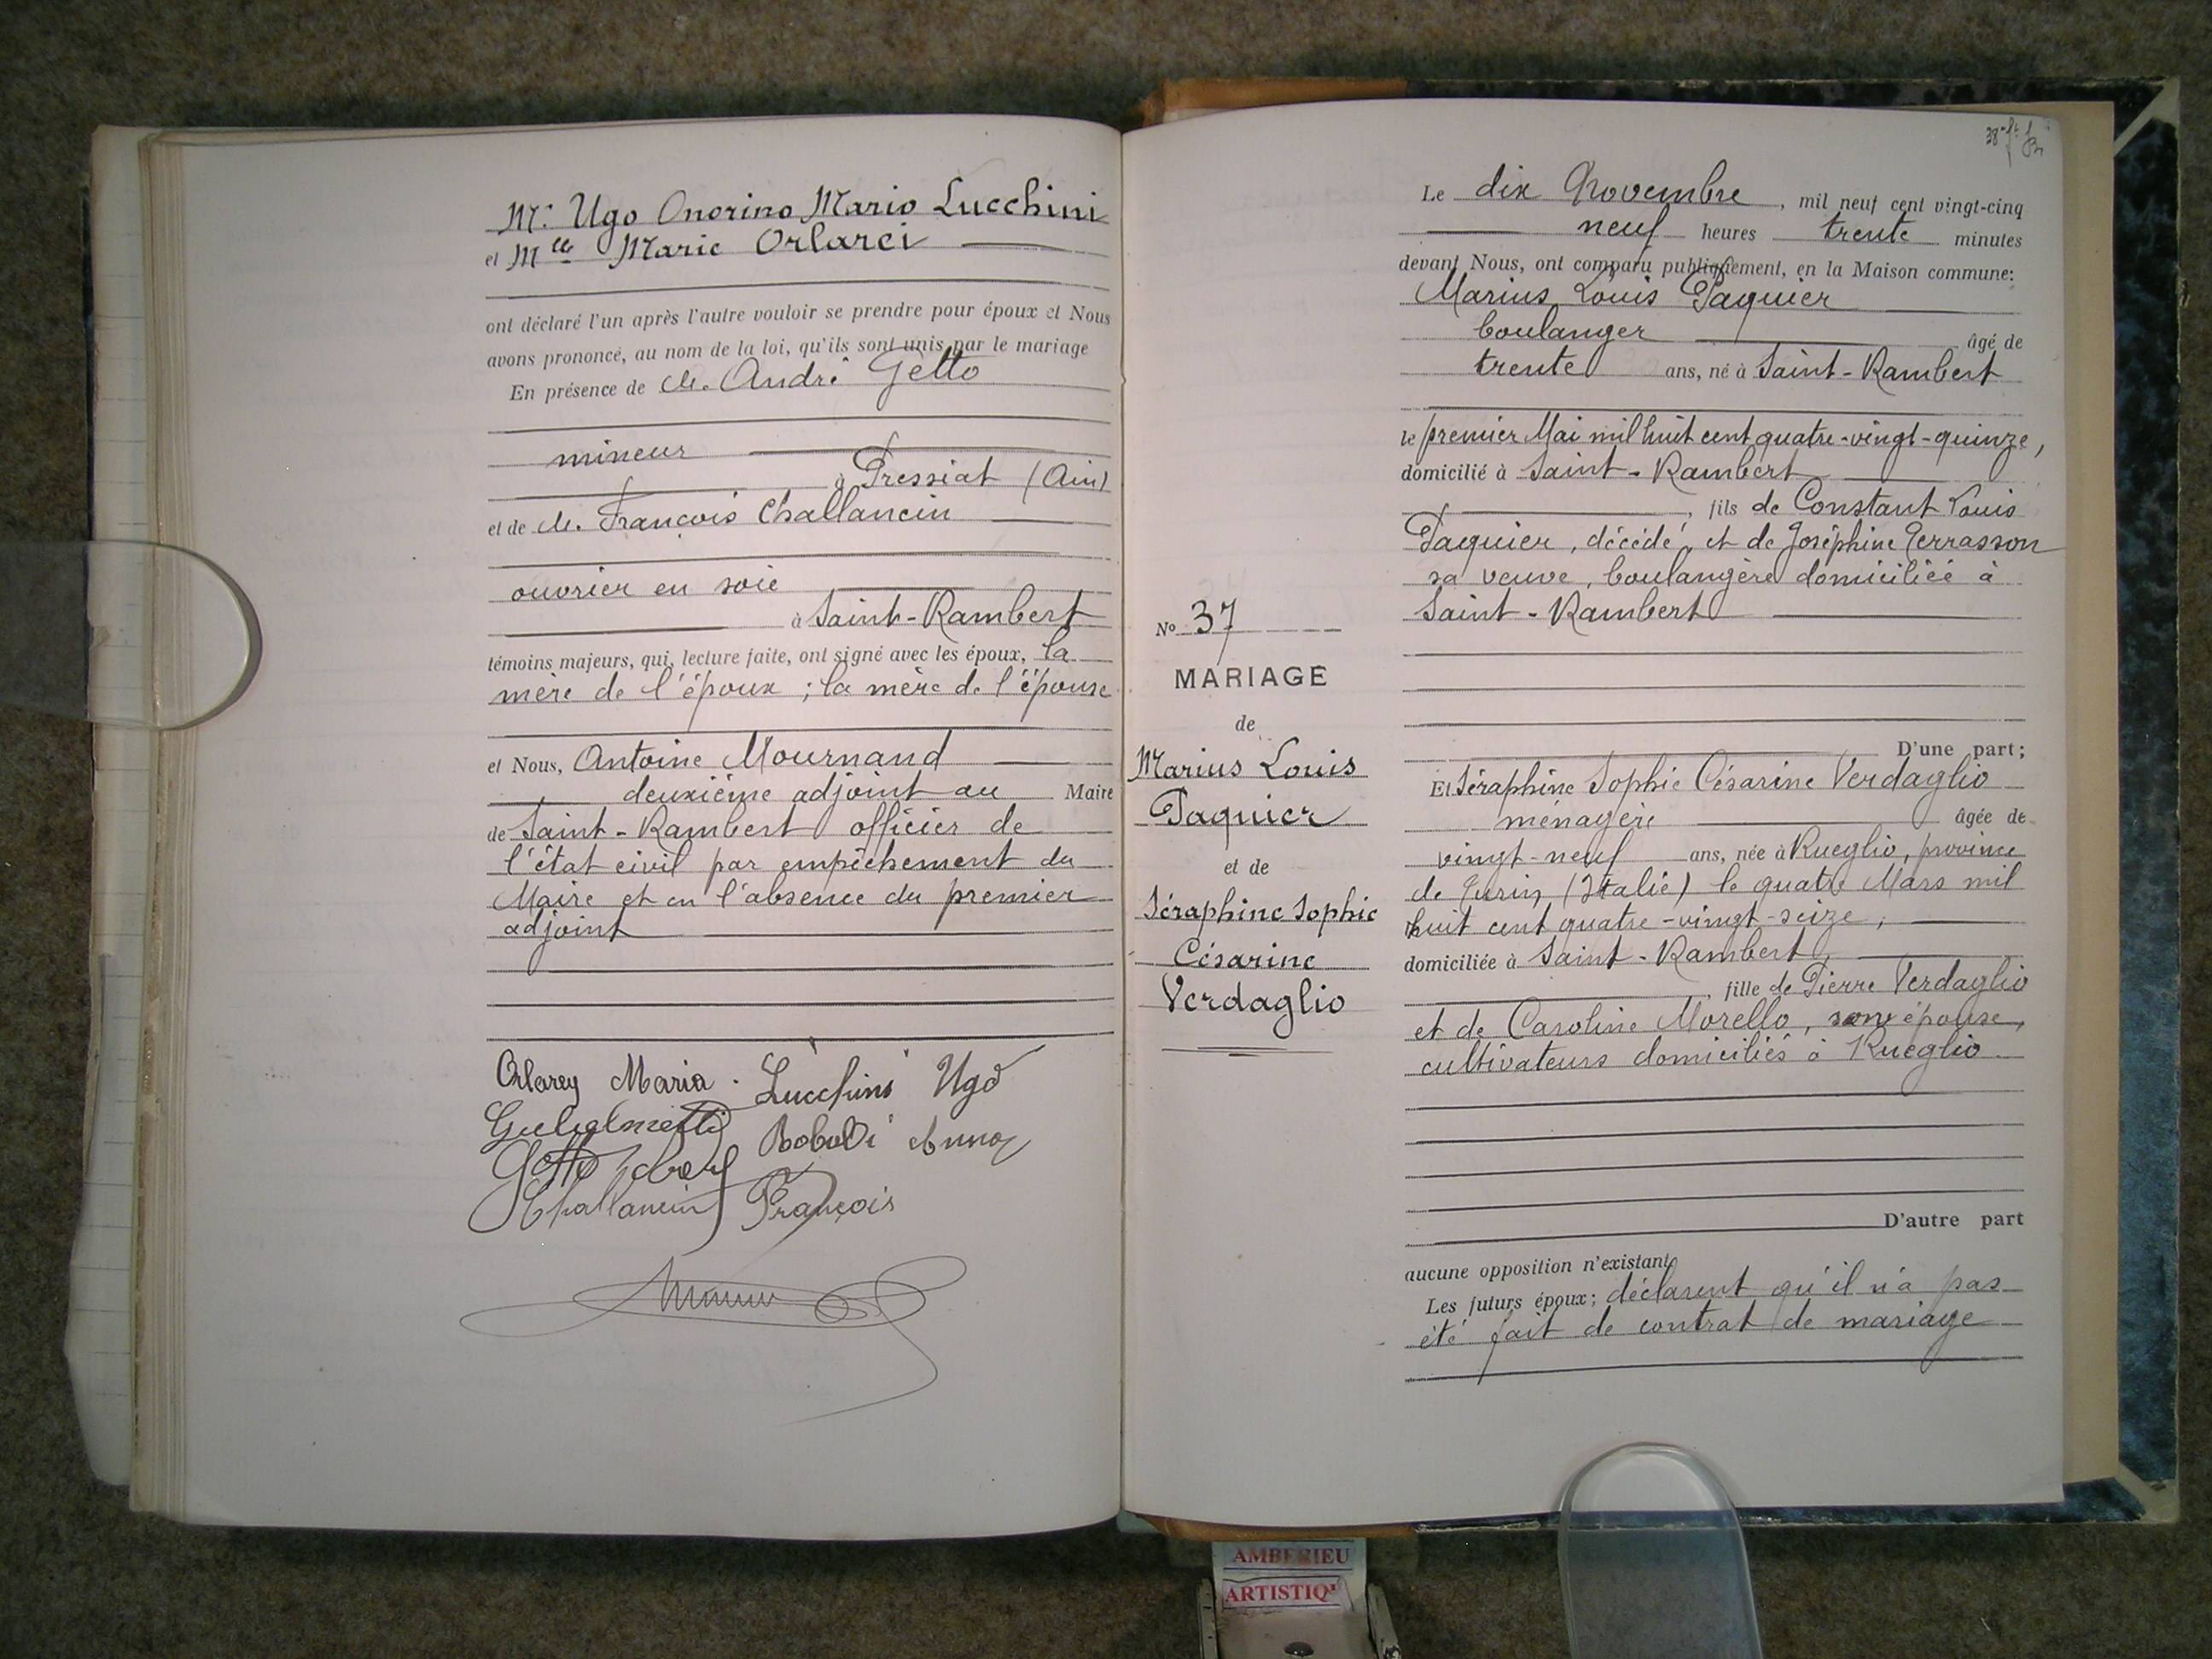 Mr. Ugo Onorino Mario Lucchini
et Mlle Marie Orlarei
ont déclaré l'un après l'autre vouloir se prendre pour époux et Nous
avons prononcé, au nom de la loi, qu'ils sont unis par le mariage
En présence de M. André Getto
mineur
à Pressiat (Ain)
et de M. François Challancin
ouvrier en soie
à Saint-Rambert
témoins majeurs, qui, lecture faite, ont signé avec les époux, la
mère de l'époux ; la mère de l'épouse
et Nous, Antoine Mournand
deuxième adjoint au Maire
de Saint-Rambert officier de
l'état civil par empêchement du
Maire et en l'absence du premier
adjoint
Orlarey Maria. Lucchini Ugo
Challancin François
38e ft
No 37
MARIAGE
de
Marius Louis
Paquier
et de
Séraphine Sophie
Césarine
Verdaglio
Le dix Novembre, mil neuf cent vingt-cinq
neuf heures trente minutes
devant Nous, ont comparu publiquement, en la Maison commune:
Marius Louis Paquier
boulanger âgé de
trente ans, né à Saint-Rambert
le premier Mai mil huit cent quatre-vingt-quinze,
domicilié à Saint-Rambert
, fils de Constant Louis
Paquier, décédé, et de Joséphine Terrasson
sa veuve, boulangère domiciliée à
Saint-Rambert
D'une part;
Et Séraphine Sophie Césarine Verdaglio
ménagère âgée de
vingt-neuf ans, née à Rueglio, province
de Turin (Italie) le quatre Mars mil
huit cent quatre-vingt-seize,
domiciliée à Saint-Rambert,
, fille de Pierre Verdaglio
et de Caroline Morello, son épouse,
cultivateurs domiciliés à Rueglio
D'autre part
aucune opposition n'existant
Les futurs époux; déclarent qu'il n'a pas
été fait de contrat de mariage
AMBERIEU
ARTISTIQ